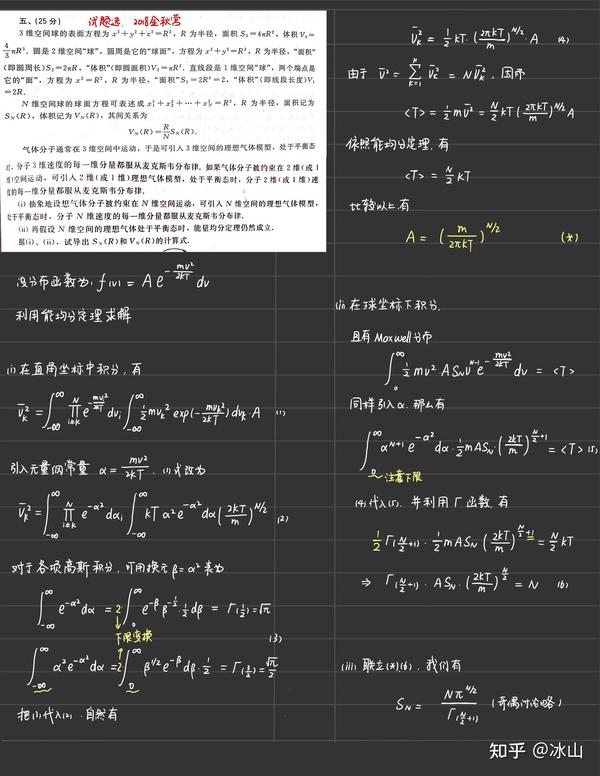 试题选. 2018金秋营
五、(25 分)
3 维空间球的表面方程为 x²+y²+z²=R²，R 为半径，面积 S₃=4πR²，体积 V₃=
4/3 πR³. 圆是 2 维空间“球”，圆周是它的“球面”，方程为 x²+y²=R²，R 为半径，“面积”
(即圆周长)S₂=2πR，“体积”(即圆面积)V₂=πR². 直线段是 1 维空间“球”，两个端点是
它的“面”，方程为 x²=R²，R 为半径，“面积”S₁=2R⁰=2，“体积”(即线段长度)V₁
=2R.
N 维空间球的球面方程可表述成 x₁²+x₂²+⋯+x_N²=R²，R 为半径，面积记为
S_N(R)，体积记为 V_N(R)，其间关系为
V_N(R)=R/N S_N(R).
气体分子通常在 3 维空间中运动，于是可引入 3 维空间的理想气体模型，处于平衡态
时，分子 3 维速度的每一维分量都服从麦克斯韦分布律. 如果气体分子被约束在 2 维(或 1
维)空间运动，可引入 2 维(或 1 维)理想气体模型，处于平衡态时，分子 2 维(或 1 维)速
度的每一维分量都服从麦克斯韦分布律.
(i) 抽象地设想气体分子被约束在 N 维空间运动，可引入 N 维空间的理想气体模型，
处于平衡态时，分子 N 维速度的每一维分量都服从麦克斯韦分布律.
(ii) 再假设 N 维空间的理想气体处于平衡态时，能量均分定理仍然成立.
据(i)、(ii)，试导出 S_N(R)和 V_N(R)的计算式.
设分布函数为: f(v) = A e^{-mv²/2kT} dv
利用能均分定理求解
(i) 在直角坐标中积分, 有
v̄ₖ² = ∫_{-∞}^{∞} ∏_{i≠k}^{N} e^{-mvᵢ²/2kT} dvᵢ ∫_{-∞}^{∞} ½mvₖ² exp(-mvₖ²/2kT) dvₖ · A (1)
引入无量纲常量 α = mv²/2kT. (1)式改为
v̄ₖ² = ∫_{-∞}^{∞} ∏_{i≠k}^{N} e^{-α²} dαᵢ ∫_{-∞}^{∞} kT α² e^{-α²} dα (2kT/m)^{N/2} (2)
对于各项高斯积分, 可用换元 β=α² 表为
∫_{-∞}^{∞} e^{-α²} dα = 2·∫_{0}^{∞} e^{-β} β^{-½}·½ dβ = Γ(½) = √π
下限变换
(3)
∫_{-∞}^{∞} α² e^{-α²} dα = 2∫_{0}^{∞} β^{1/2} e^{-β} dβ·½ = Γ(3/2) = √π/2
把(3)代入(2). 自然有
v̄ₖ² = ½ kT·(2πkT/m)^{N/2}·A (4)
由于 v̄² = Σ_{k=1}^{N} v̄ₖ² = N v̄ₖ², 因而
<T> = ½ m v̄² = N/2 kT (2πkT/m)^{N/2} A
依照能均分定理. 有
<T> = N/2 kT
比较以上有
A = (m/2πkT)^{N/2} (*)
(ii) 在球坐标下积分.
且有 Maxwell分布
∫_{0}^{∞} ½ mv²·A S_N v^{N-1} e^{-mv²/2kT} dv = <T>
同样引入α. 那么有
∫_{0}^{∞} α^{N+1} e^{-α²} dα·½ m A S_N·(2kT/m)^{N/2+1} = <T> (5)
注意下限
(4)代入(5). 并利用Γ函数 有
½ Γ(N/2+1)·½ m A S_N (2kT/m)^{N/2+1} = N/2 kT
⇒ Γ(N/2+1)·A S_N·(2kT/m)^{N/2} = N (6)
(iii) 联立(*)(6). 我们有
S_N = Nπ^{N/2}/Γ(N/2+1) (奇偶讨论略)
知乎 @冰山